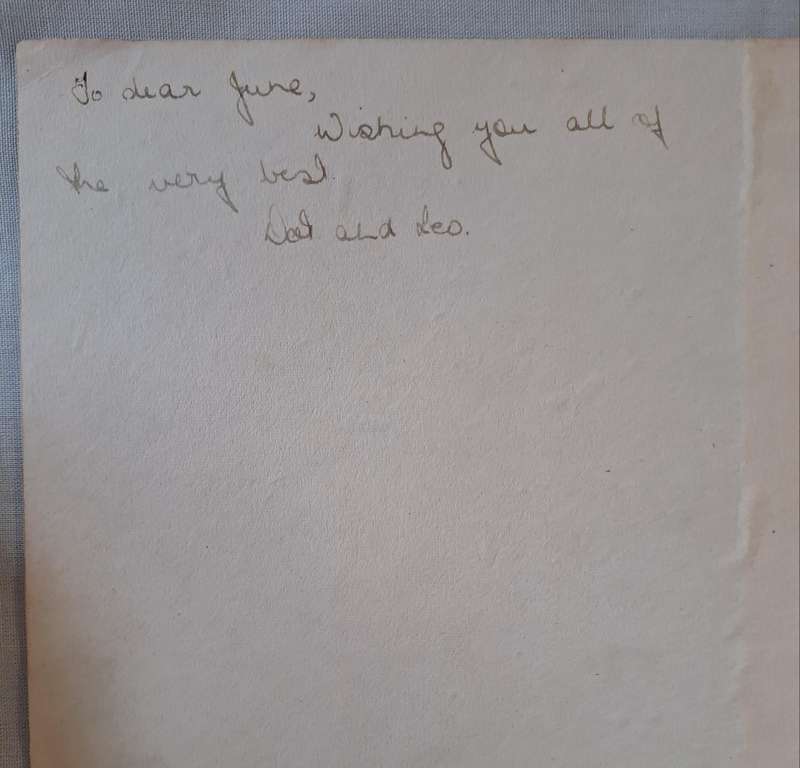 To dear June,
Wishing you all of
the very best.
Dot and Leo.